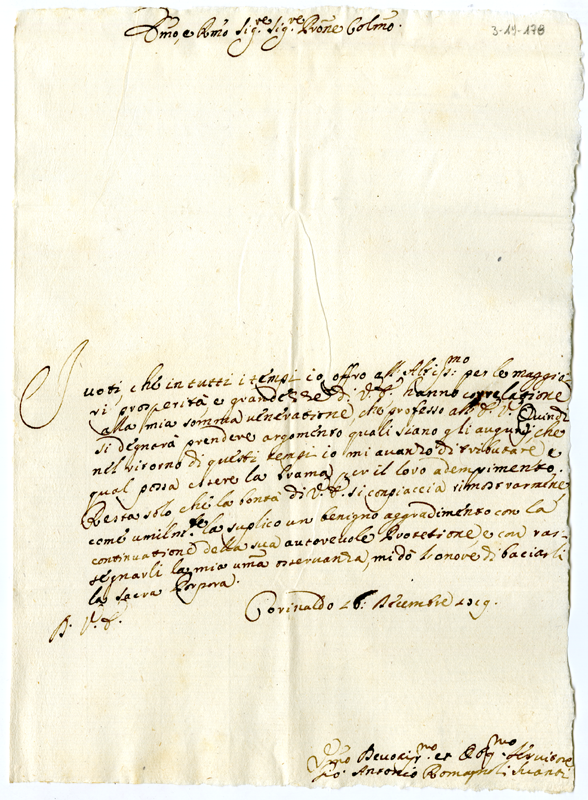 Emo, e Rmo Sig.re Sig.re Prone Colmo.
3-19-178
I voti che in tutti i tempi io offro all' Altiss:mo per le maggio-
ri prosperità e grandezze di V. E. hanno correlazione
alla mia somma veneratione che professo all' E. V. Quindi
si degnarà prendere argomento quali siano gli augurj che
nel ritorno di questi tempi io mi avanzo di tributarle e
qual possa essere la brama per il loro adempimento.
Resta solo che la bontà di V. E. si compiaccia rimostrarmene
come umilm:te la suplico un benigno aggradimento con la
continuatione della sua autorevole Protetione e con ras-
segnarli la mia uma osservanza mi dò l'onore di baciarli
la Sacra Porpora.
D. V. E.
Corinaldo 16: Dicembre 1719.
Umo Devotis.mo et Obg.mo Servitore
Antonio Romagnoli